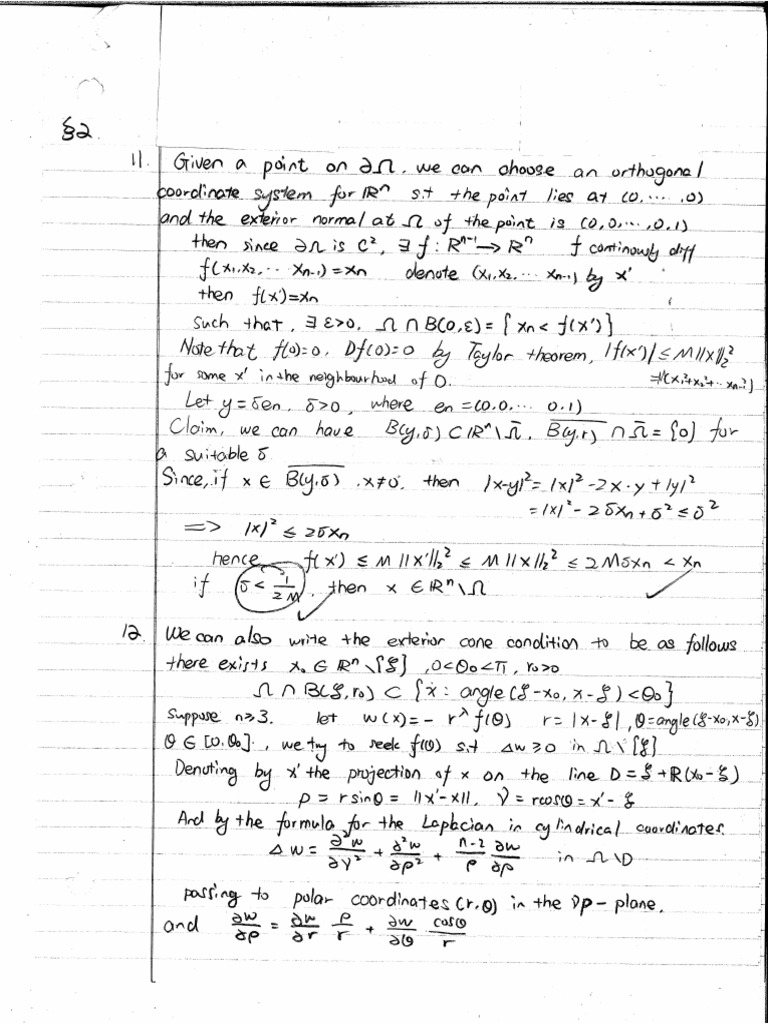 §2.
11. Given a point on ∂Ω, we can choose an orthogonal
coordinate system for ℝⁿ s.t the point lies at (0,⋯,0)
and the exterior normal at Ω of the point is (0,0,⋯,0,1)
then since ∂Ω is C², ∃ f: Rⁿ⁻¹ → Rⁿ f continously diff
f(x₁,x₂,⋯ xₙ₋₁) = xₙ denote (x₁,x₂,⋯ xₙ₋₁) by x'
then f(x')=xₙ
Such that, ∃ ε>0, Ω ∩ B(0,ε) = {xₙ < f(x')}
Note that f(0)=0, Df(0)=0 by Taylor theorem, |f(x')| ≤ M||x'||₂²
for some x' in the neighbourhood of 0. =M(x₁²+x₂²+⋯xₙ₋₁²)
Let y = δeₙ, δ>0, where eₙ = (0,0,⋯ 0,1)
Claim, we can have B(y,δ) ⊂ ℝⁿ\Ω̄, \overline{B(y,r)} ∩ Ω̄ = {0} for
a suitable δ
Since, if x ∈ \overline{B(y,δ)}, x≠0, then |x-y|² = |x|² - 2x·y + |y|²
= |x|² - 2δxₙ + δ² ≤ δ²
⟹ |x|² ≤ 2δxₙ
hence f(x') ≤ M||x'||₂² ≤ M||x||₂² ≤ 2Mδxₙ < xₙ
if δ < 1/2M, then x ∈ ℝⁿ\Ω
12. We can also write the exterior cone condition to be as follows
there exists x₀ ∈ ℝⁿ\{ξ}, 0<θ₀<π, r₀>0
Ω ∩ B(ξ,r₀) ⊂ {x : angle(ξ-x₀, x-ξ) < θ₀}
Suppose n≥3. let w(x) = - r^λ f(θ) r = |x-ξ|, θ=angle(ξ-x₀,x-ξ)
θ ∈ [0,θ₀], we try to seek f(θ) s.t Δw ≥ 0 in Ω\{ξ}
Denoting by x' the projection of x on the line D = ξ + R(x₀-ξ)
ρ = r sinθ = ||x'-x||, ν = r cosθ = x'-ξ
And by the formula for the Laplacian in cylindrical coordinates.
Δw = ∂²w/∂ν² + ∂²w/∂ρ² + (n-2)/ρ ∂w/∂ρ in Ω\D
passing to polar coordinates (r,θ) in the νρ-plane.
and ∂w/∂ρ = ∂w/∂r ρ/r + ∂w/∂θ cosθ/r